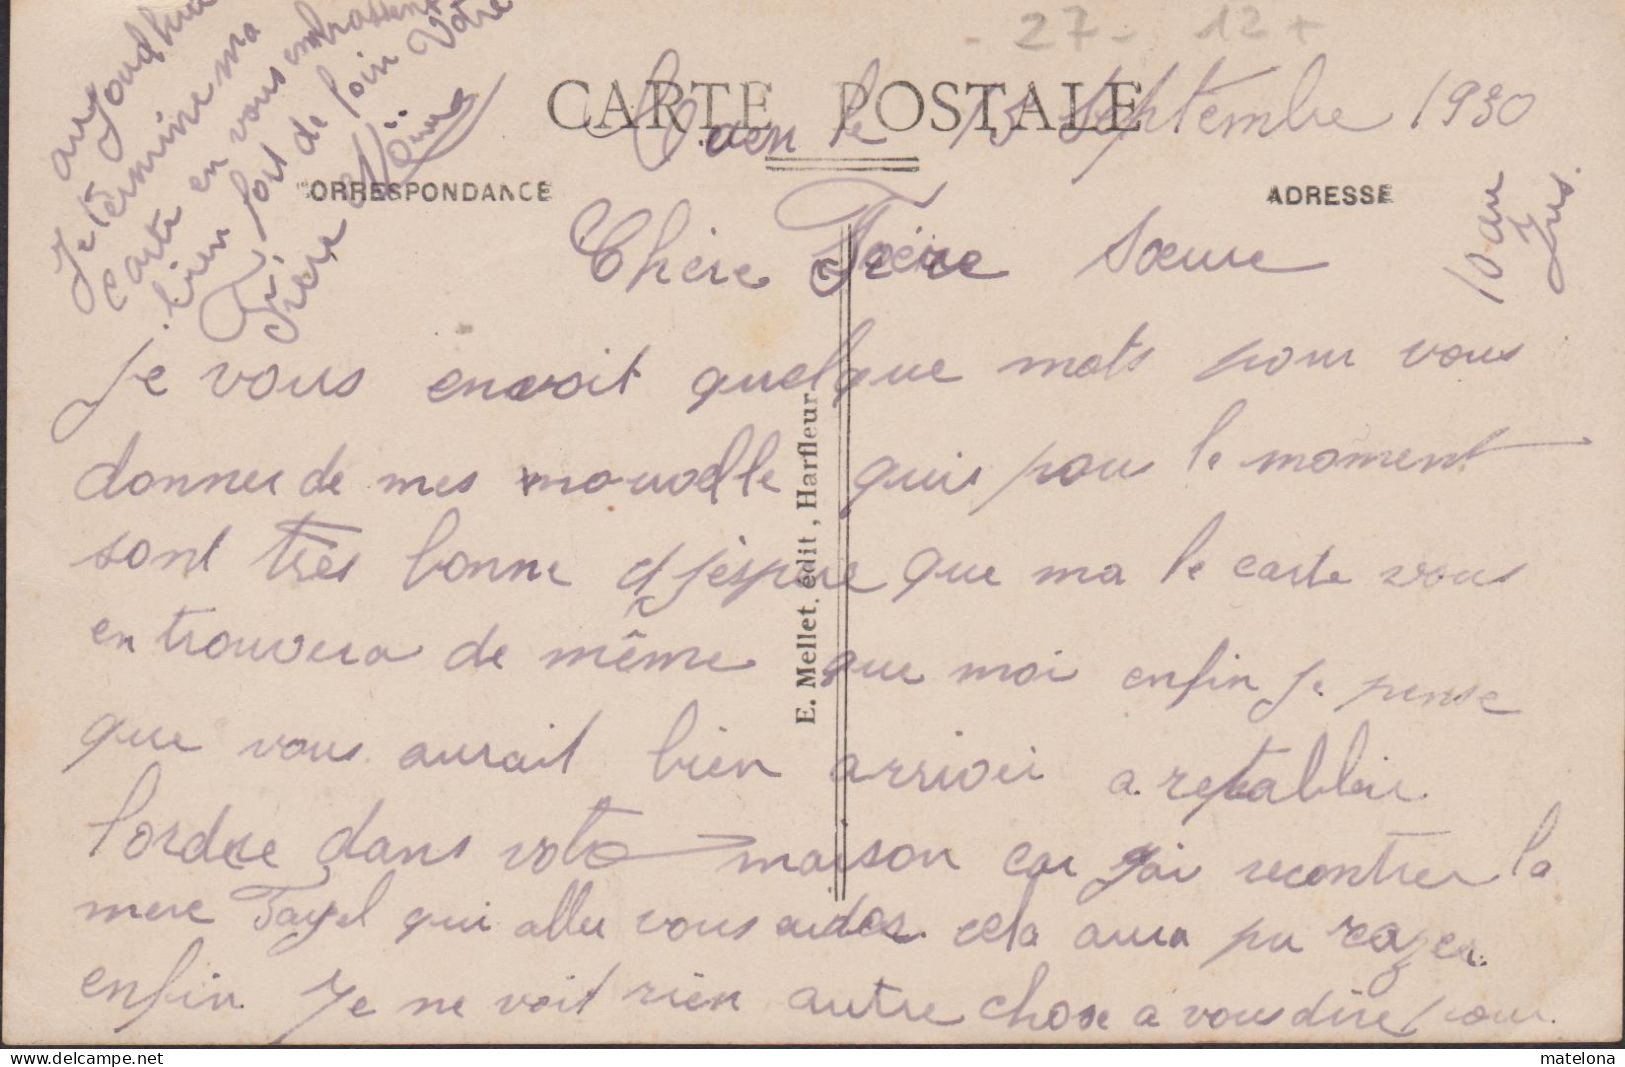 - 27 - 12 +
CARTE POSTALE
Caen le 15 Septembre 1930
CORRESPONDANCE
ADRESSE
Chère Frère Sœure
je vous envoit quelque mots pour vous
donner de mes nouvelle quis pour le moment
sont très bonne et j'éspere que ma le carte vous
en trouvera de même que moi enfin je pense
que vous aurait bien arriver a retablir
l'ordre dans votre maison car j'ai recontrer la
mere Tayel qui aller vous aider. cela aura pu
enfin Je ne voit rien autre chose a vous dire pour
aujourd'hui
Je términe ma
carte en vous embrassent
bien fort de loin Votre
Frère
E. Mellet. édit, Harfleur
matelona
(c) delcampe.net